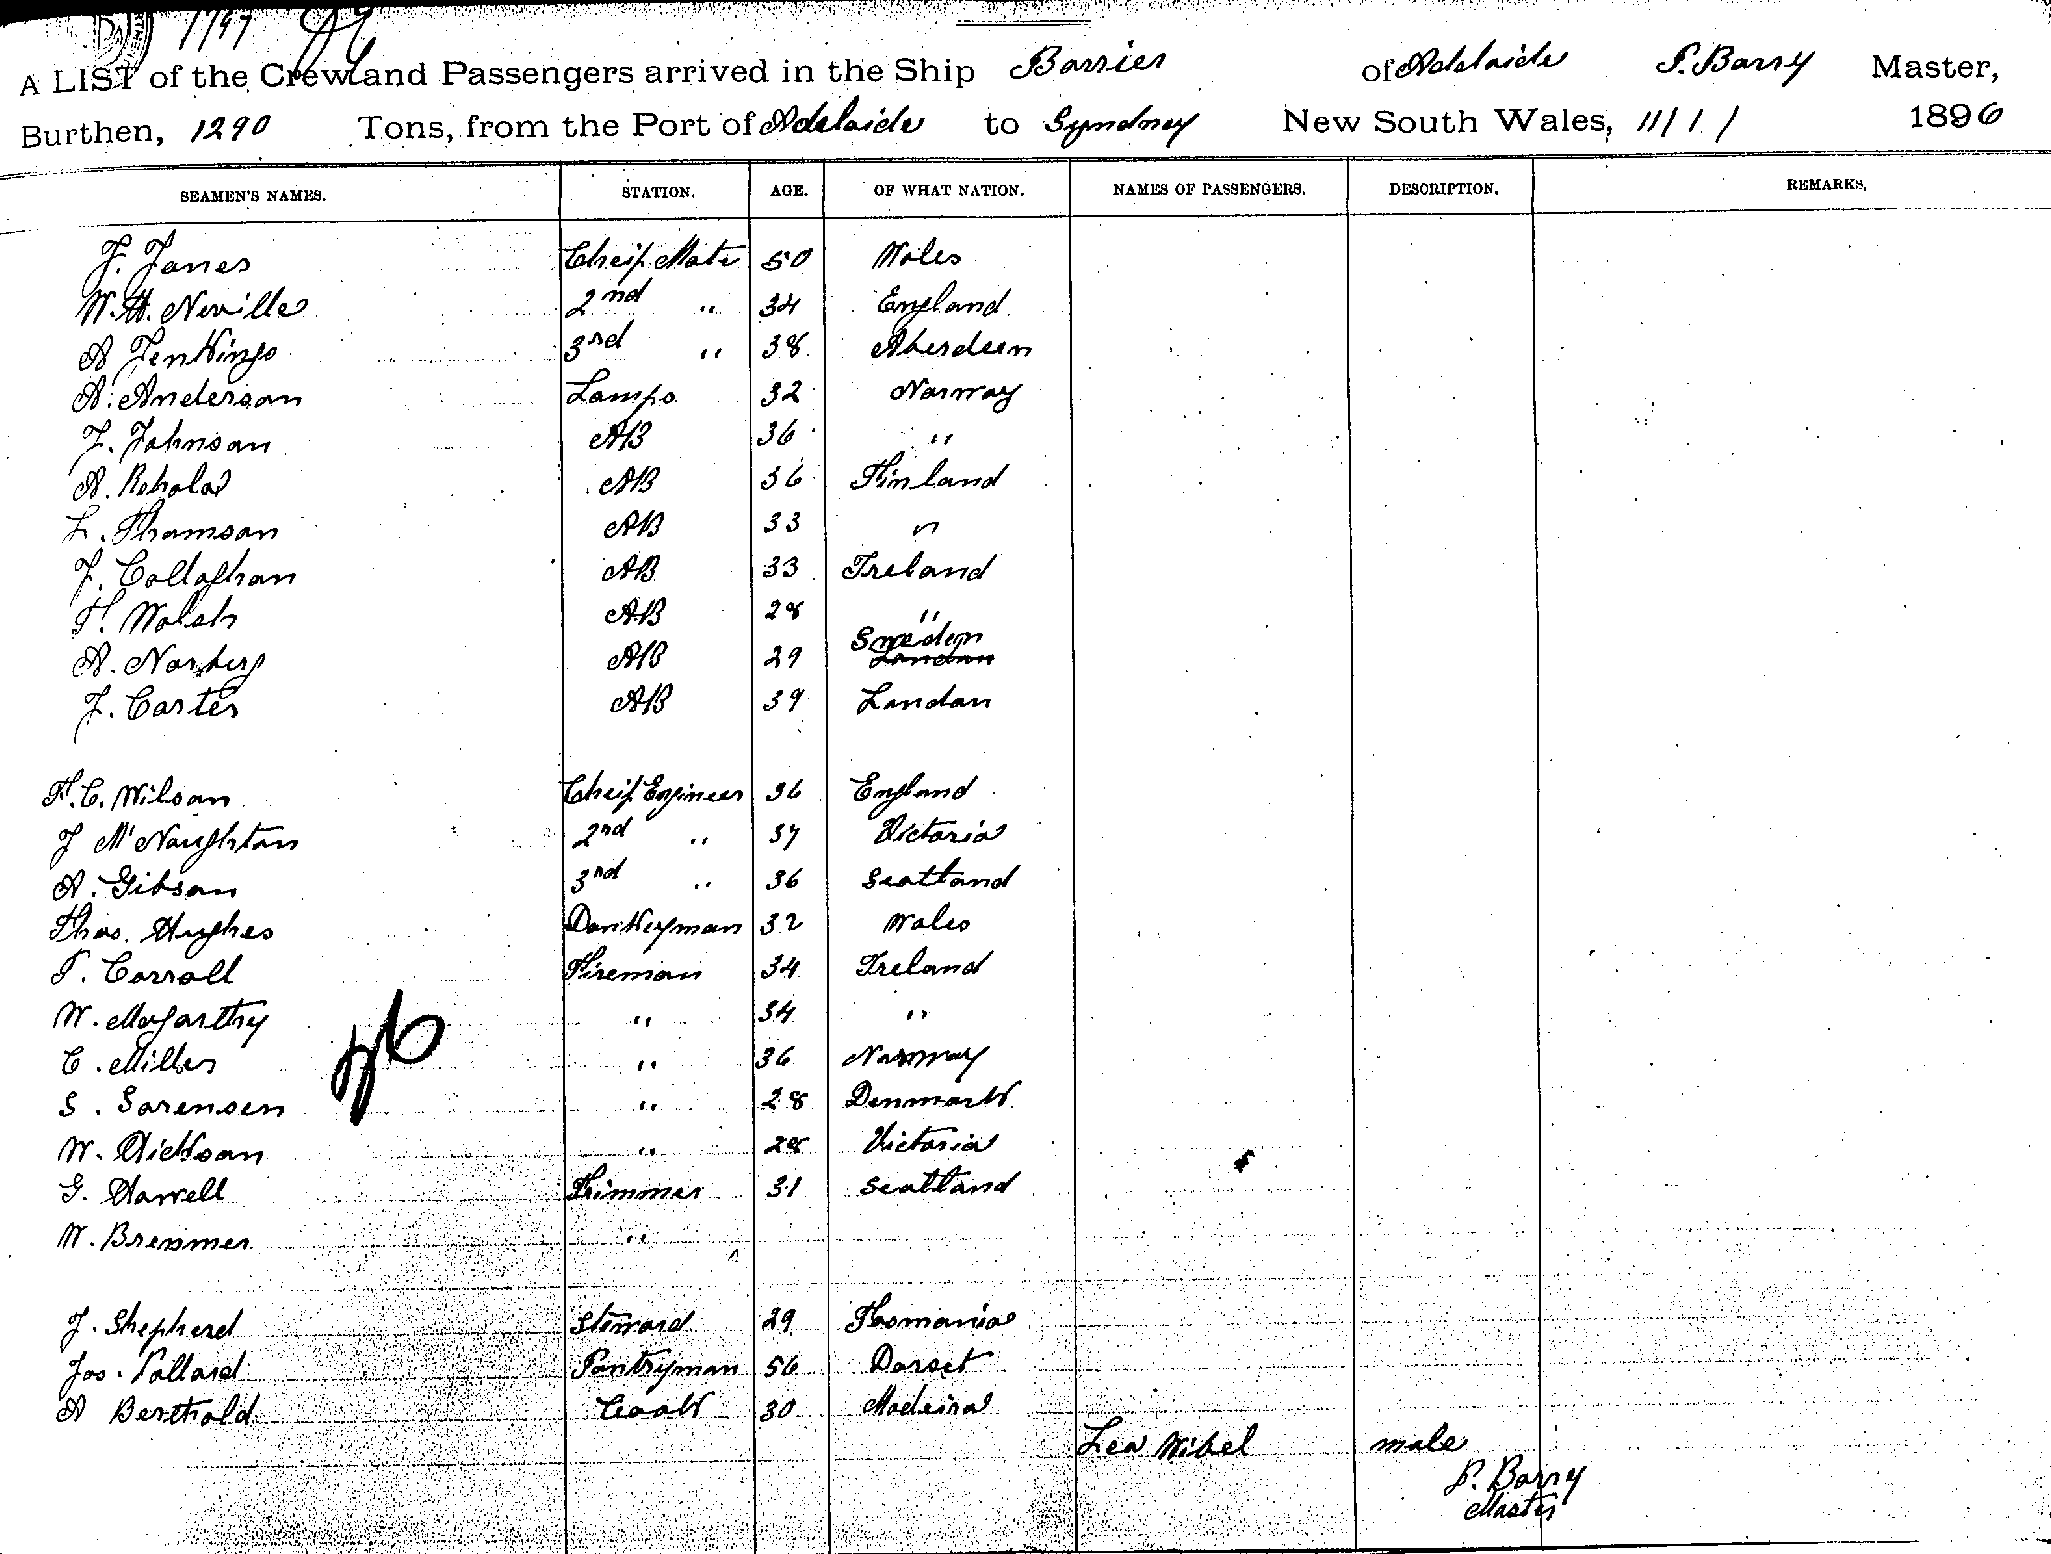 A LIST of the Crew and Passengers arrived in the Ship Barrier of Adelaide P. Barry Master,
Burthen, 1290 Tons, from the Port of Adelaide to Syndney New South Wales, 11/1/ 1896
SEAMEN'S NAMES. STATION. AGE. OF WHAT NATION. NAMES OF PASSENGERS. DESCRIPTION. REMARKS.
J. Jones Cheif Mate 50 Wales
W. H. Neville 2nd " 34 England
A Jenkings 3rd " 38 Aberdeen
A. Anderson Lamps 32 Norway
J. Johnson AB 36 "
A. AB 36 Finland
L. Thomson AB 33 "
J. Collaghan AB 33 Ireland
T. Walsh AB 28 "
A. Norberg AB 29 Sweden London
J. Carter AB 39 London
F. C. Wilson Cheif Engineer 36 England
J McNaughton 2nd " 37 Victoria
A. Gibson 3rd " 36 Scotland
Thos. Hughes Donkeyman 32 Wales
T. Carroll Fireman 34 Ireland
W. Magarthy " 34 "
C. Miller " 36 Norway
S. Sorensen " 28 Denmark
W. Dickson " 28 Victoria
G. Harrell Trimmer 31 Scotland
W. Bremmer "
J. Shepherd Steward 29 Tasmania
Jos. Pollard Pantryman 56 Dorset
A Berthold Cook 30 Madeira
Leo Wibel male
P. Barry
Master